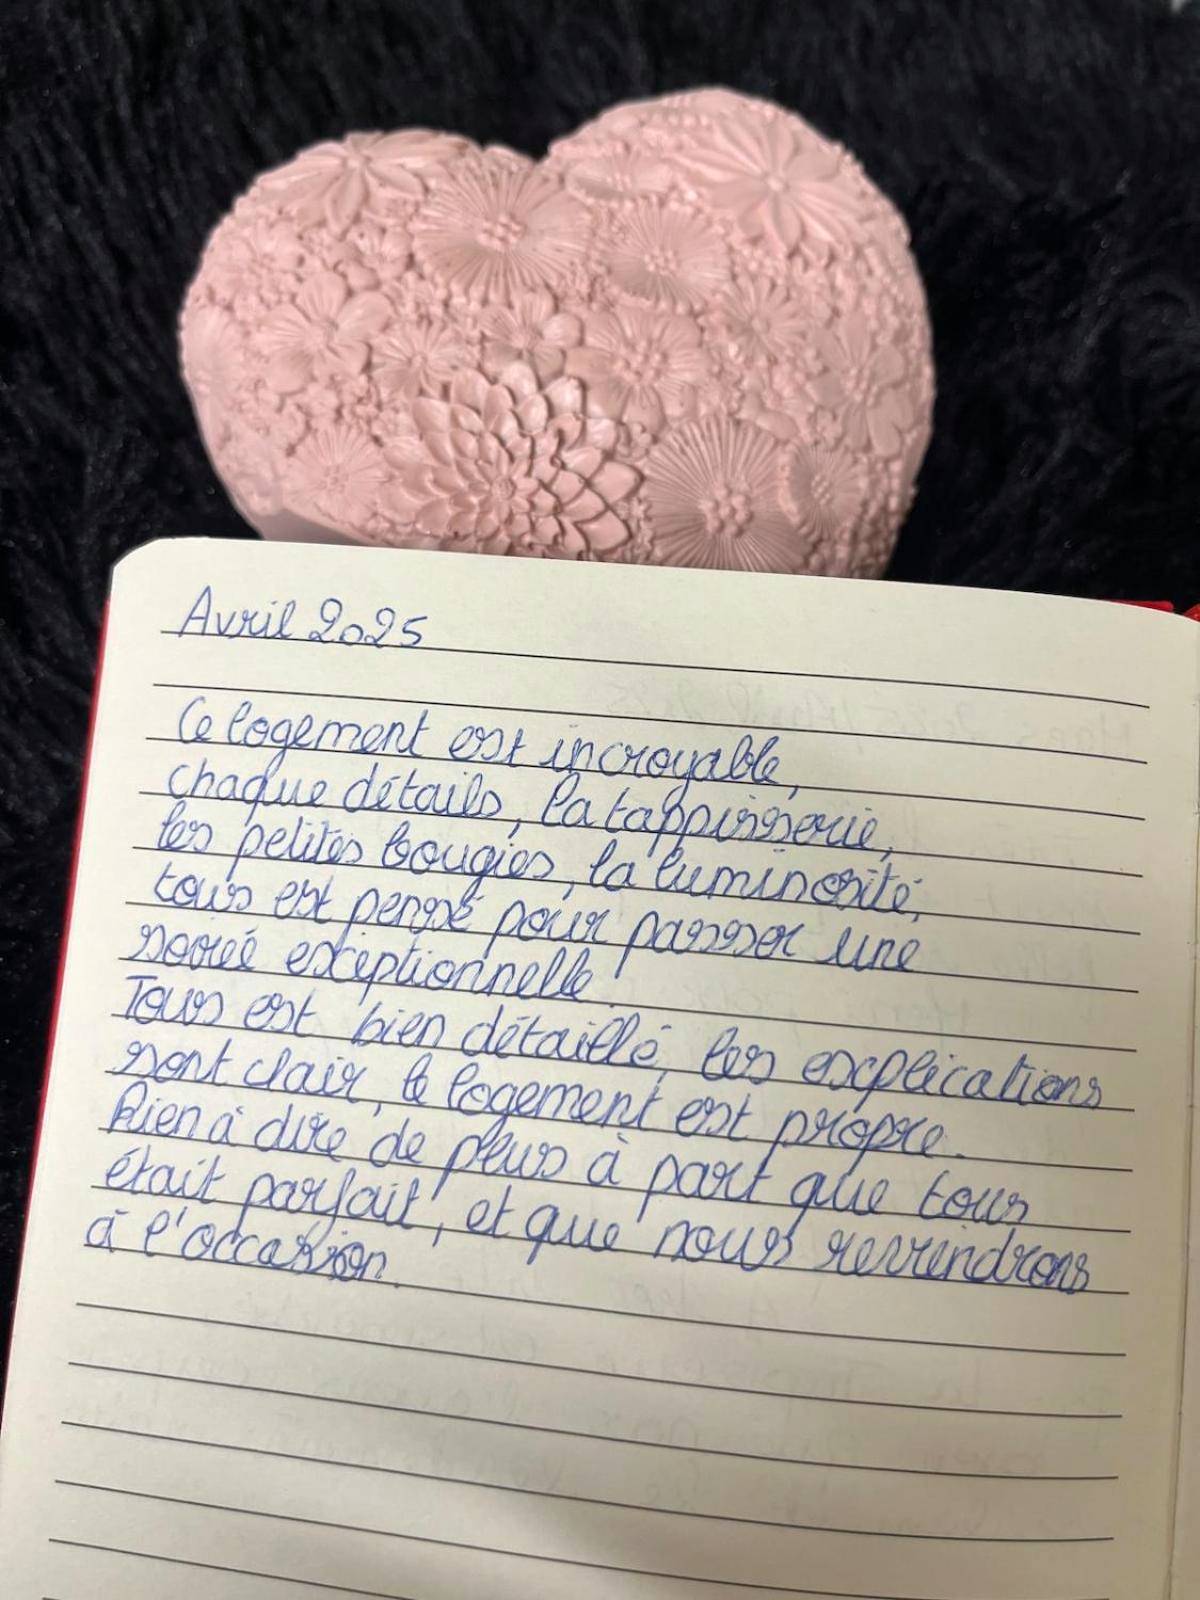 Avril 2025
Ce logement est incroyable,
chaque détails, la tappisserie,
les petites bougies, la luminosité,
tous est pensé pour passer une
soireé exceptionnelle.
Tous est bien détaillé, les explications
sont clair, le logement est propre.
Rien à dire de plus à part que tous
était parfait, et que nous reviendrons
à l'occasion.